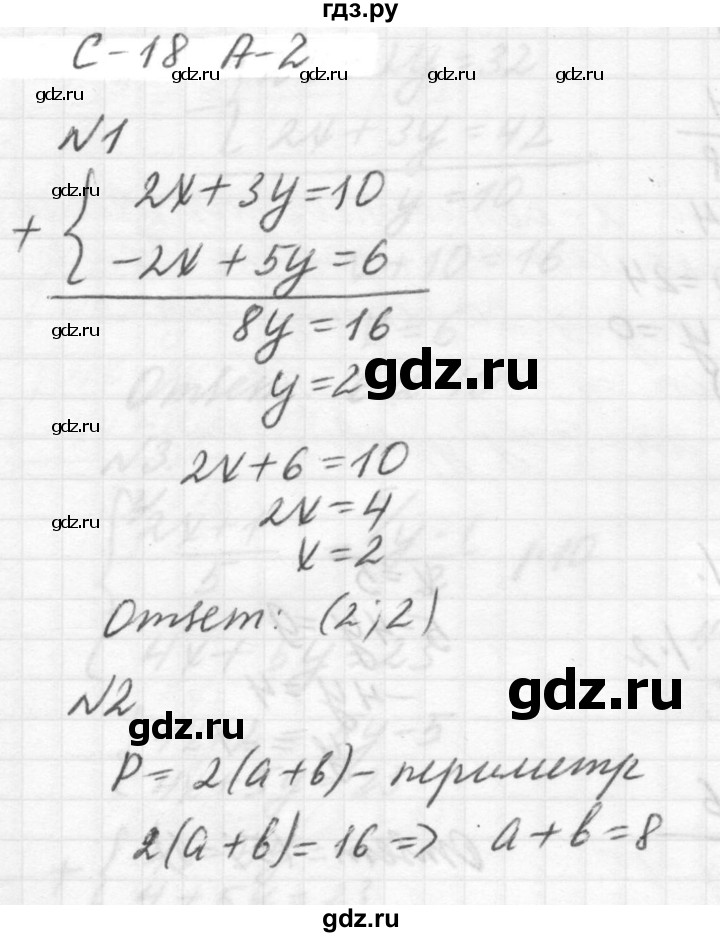 гдз.ру
С-18 А-2
gdz.ru gdz.ru gdz.ru gdz.ru
№1
gdz.ru
2x+3y=10
+ {
-2x+5y=6
gdz.ru
8y=16
gdz.ru
y=2
gdz.ru
2x+6=10
2x=4
gdz.ru
x=2
Ответ: (2;2)
gdz.ru
№2
gdz.ru
P=2(a+b)-периметр
2(a+b)=16=> a+b=8
gdz.ru